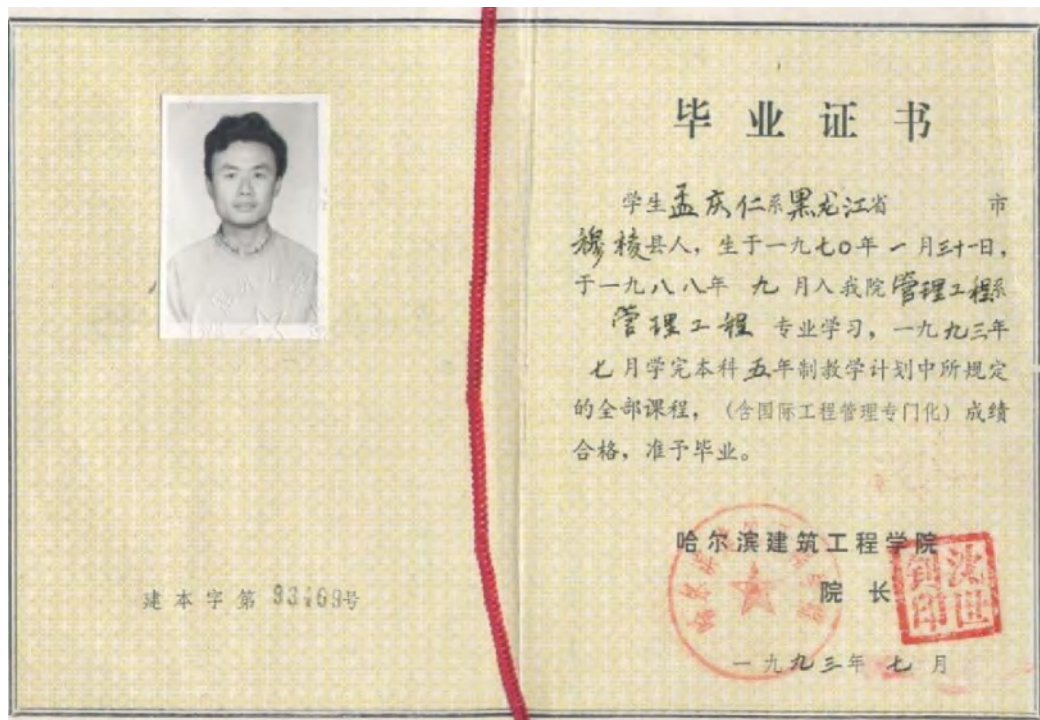 建本字第 93469号
毕业证书
学生孟庆仁系黑龙江省 市
穆棱县人，生于一九七〇年一月三十一日，
于一九八八年 九 月入我院管理工程系
管理工程 专业学习，一九九三年
七月学完本科五年制教学计划中所规定
的全部课程，（含国际工程管理专门化）成绩
合格，准予毕业。
哈尔滨建筑工程学院
院 长
沈世钊印
一九九三年 七 月